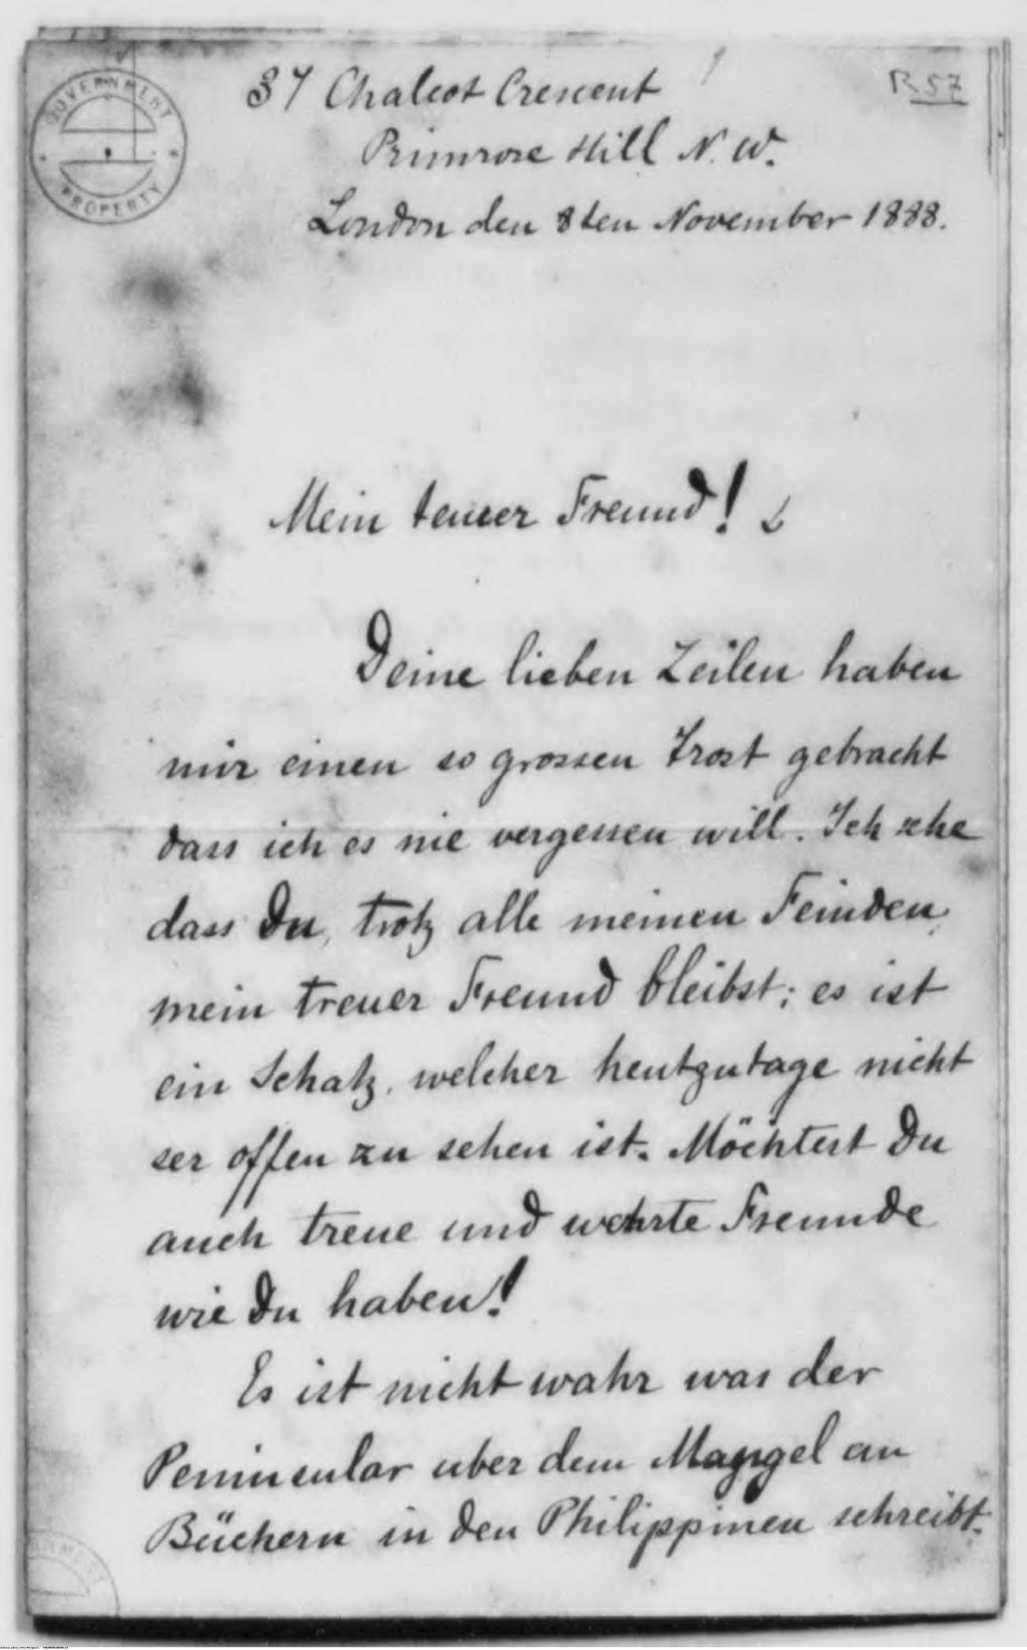 37 Chalcot Crescent
R 57
Primrose Hill N. W.
London den 8ten November 1888.
GOVERNMENT
PROPERTY
Mein teuer Freund!
Deine lieben Zeilen haben
mir einen so grossen Trost gebracht
dass ich es nie vergessen will. Ich sehe
dass Du, trotz alle meinen Feinden,
mein treuer Freund bleibst; es ist
ein Schatz, welcher heutzutage nicht
ser offen zu sehen ist. Möchtest Du
auch treue und wehrte Freunde
wie Du haben!
Es ist nicht wahr was der
Peninsular uber dem Mangel an
Büchern in den Philippinen schreibt.